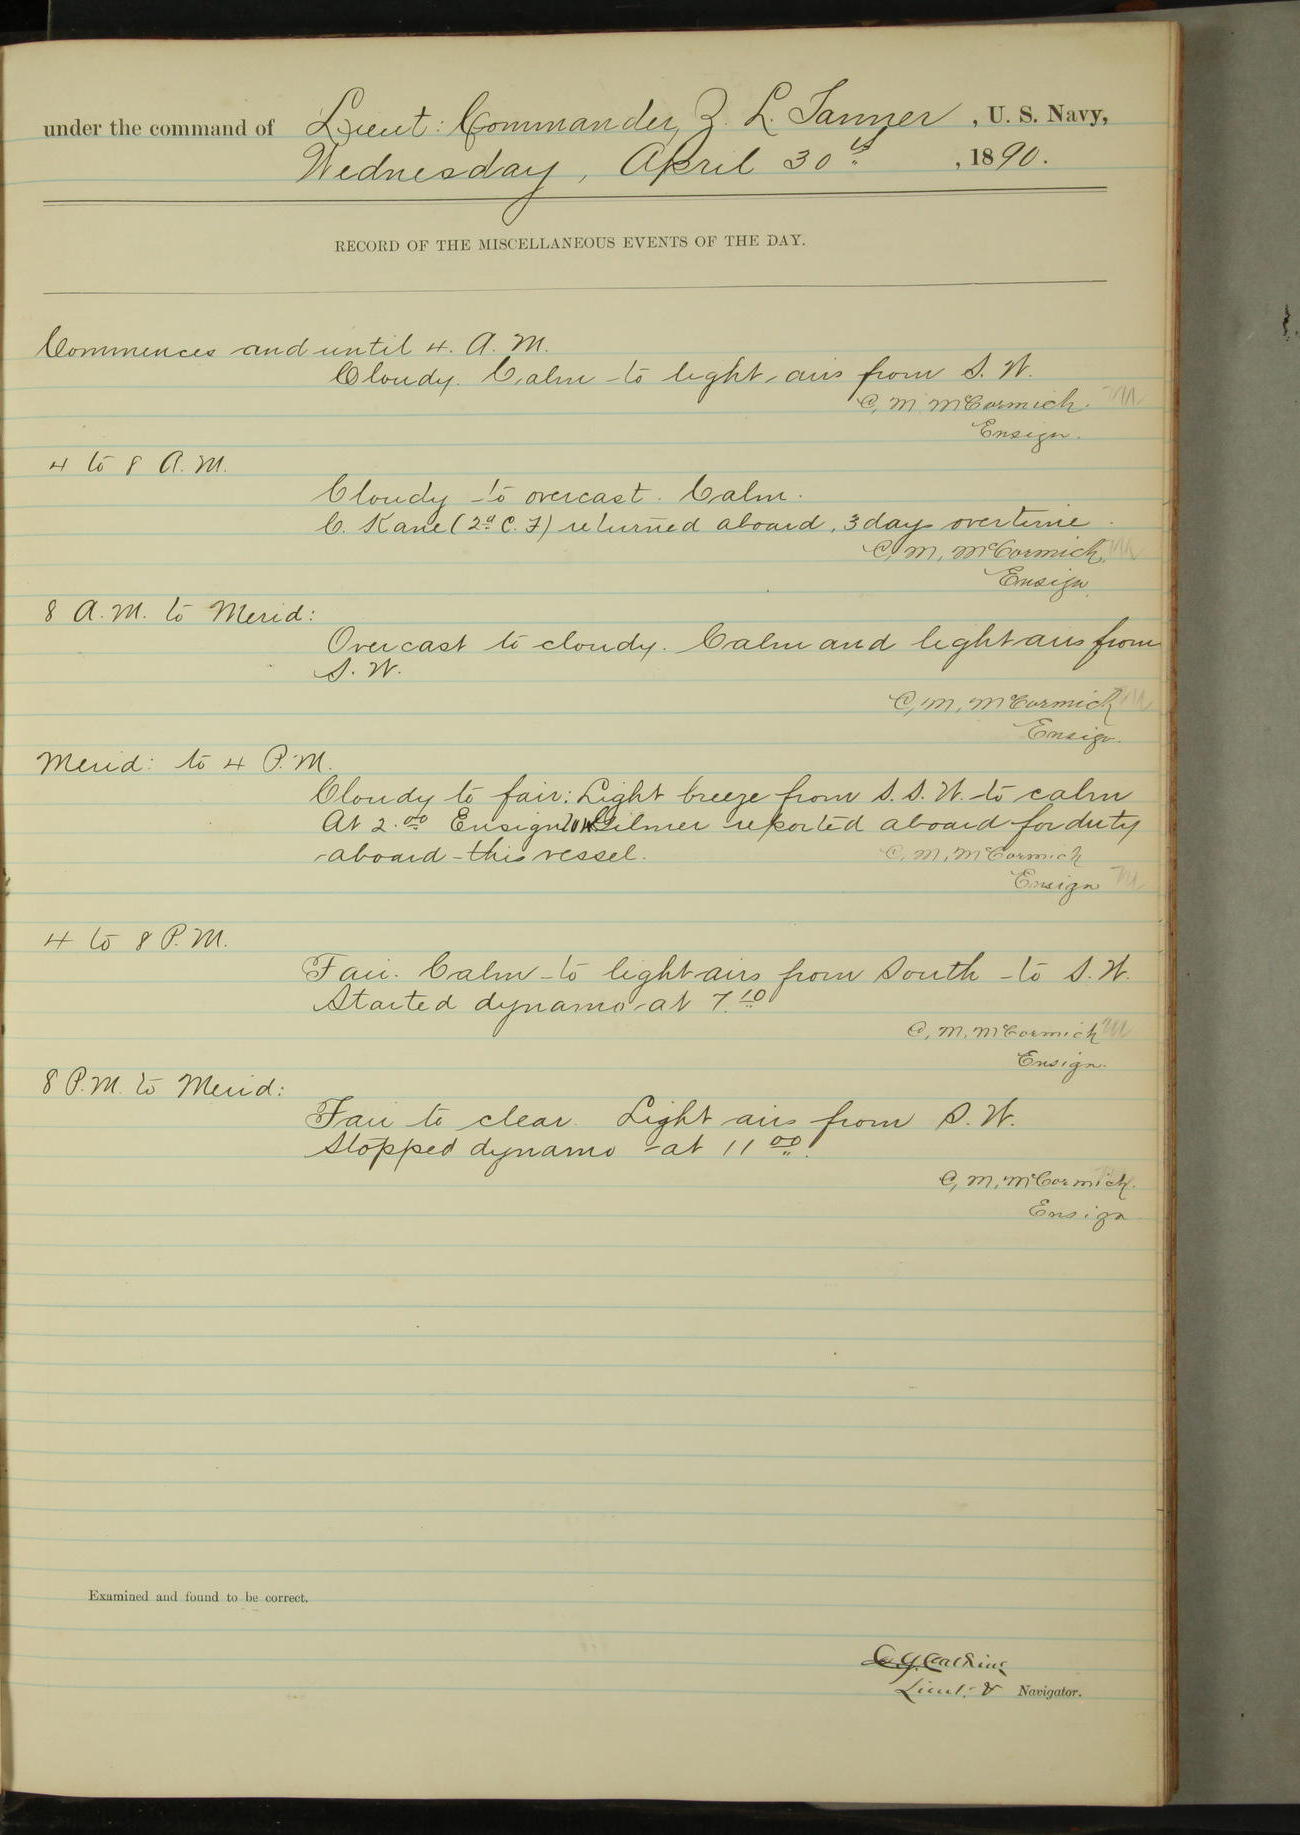 under the command of Lieut: Commander Z. L. Tanner, U. S. Navy,
Wednesday, April 30th, 1890.
RECORD OF THE MISCELLANEOUS EVENTS OF THE DAY.
Commences and until 4. A. M.
Cloudy. Calm to light airs from S. W.
C. M. McCormick.
Ensign.
4 to 8 A. M.
Cloudy to overcast. Calm.
C. Kane (2d C. F) returned aboard, 3 days overtime.
C. M. McCormick.
Ensign.
8 A. M. to Merid:
Overcast to cloudy. Calm and light airs from
S. W.
C. M. McCormick
Ensign.
Merid: to 4 P. M.
Cloudy to fair: Light breeze from S. S. W. to calm
At 2.00 Ensign Gilmer reported aboard for duty
aboard this vessel.
C. M. McCormick
Ensign
4 to 8 P. M.
Fair. Calm to light airs from South to S. W.
Started dynamo at 7.10
C. M. McCormick
Ensign.
8 P. M. to Merid:
Fair to clear. Light airs from S. W.
Stopped dynamo at 11 00.
C. M. McCormick.
Ensign
Examined and found to be correct.
C. G. Calkins
Lieut. & Navigator.